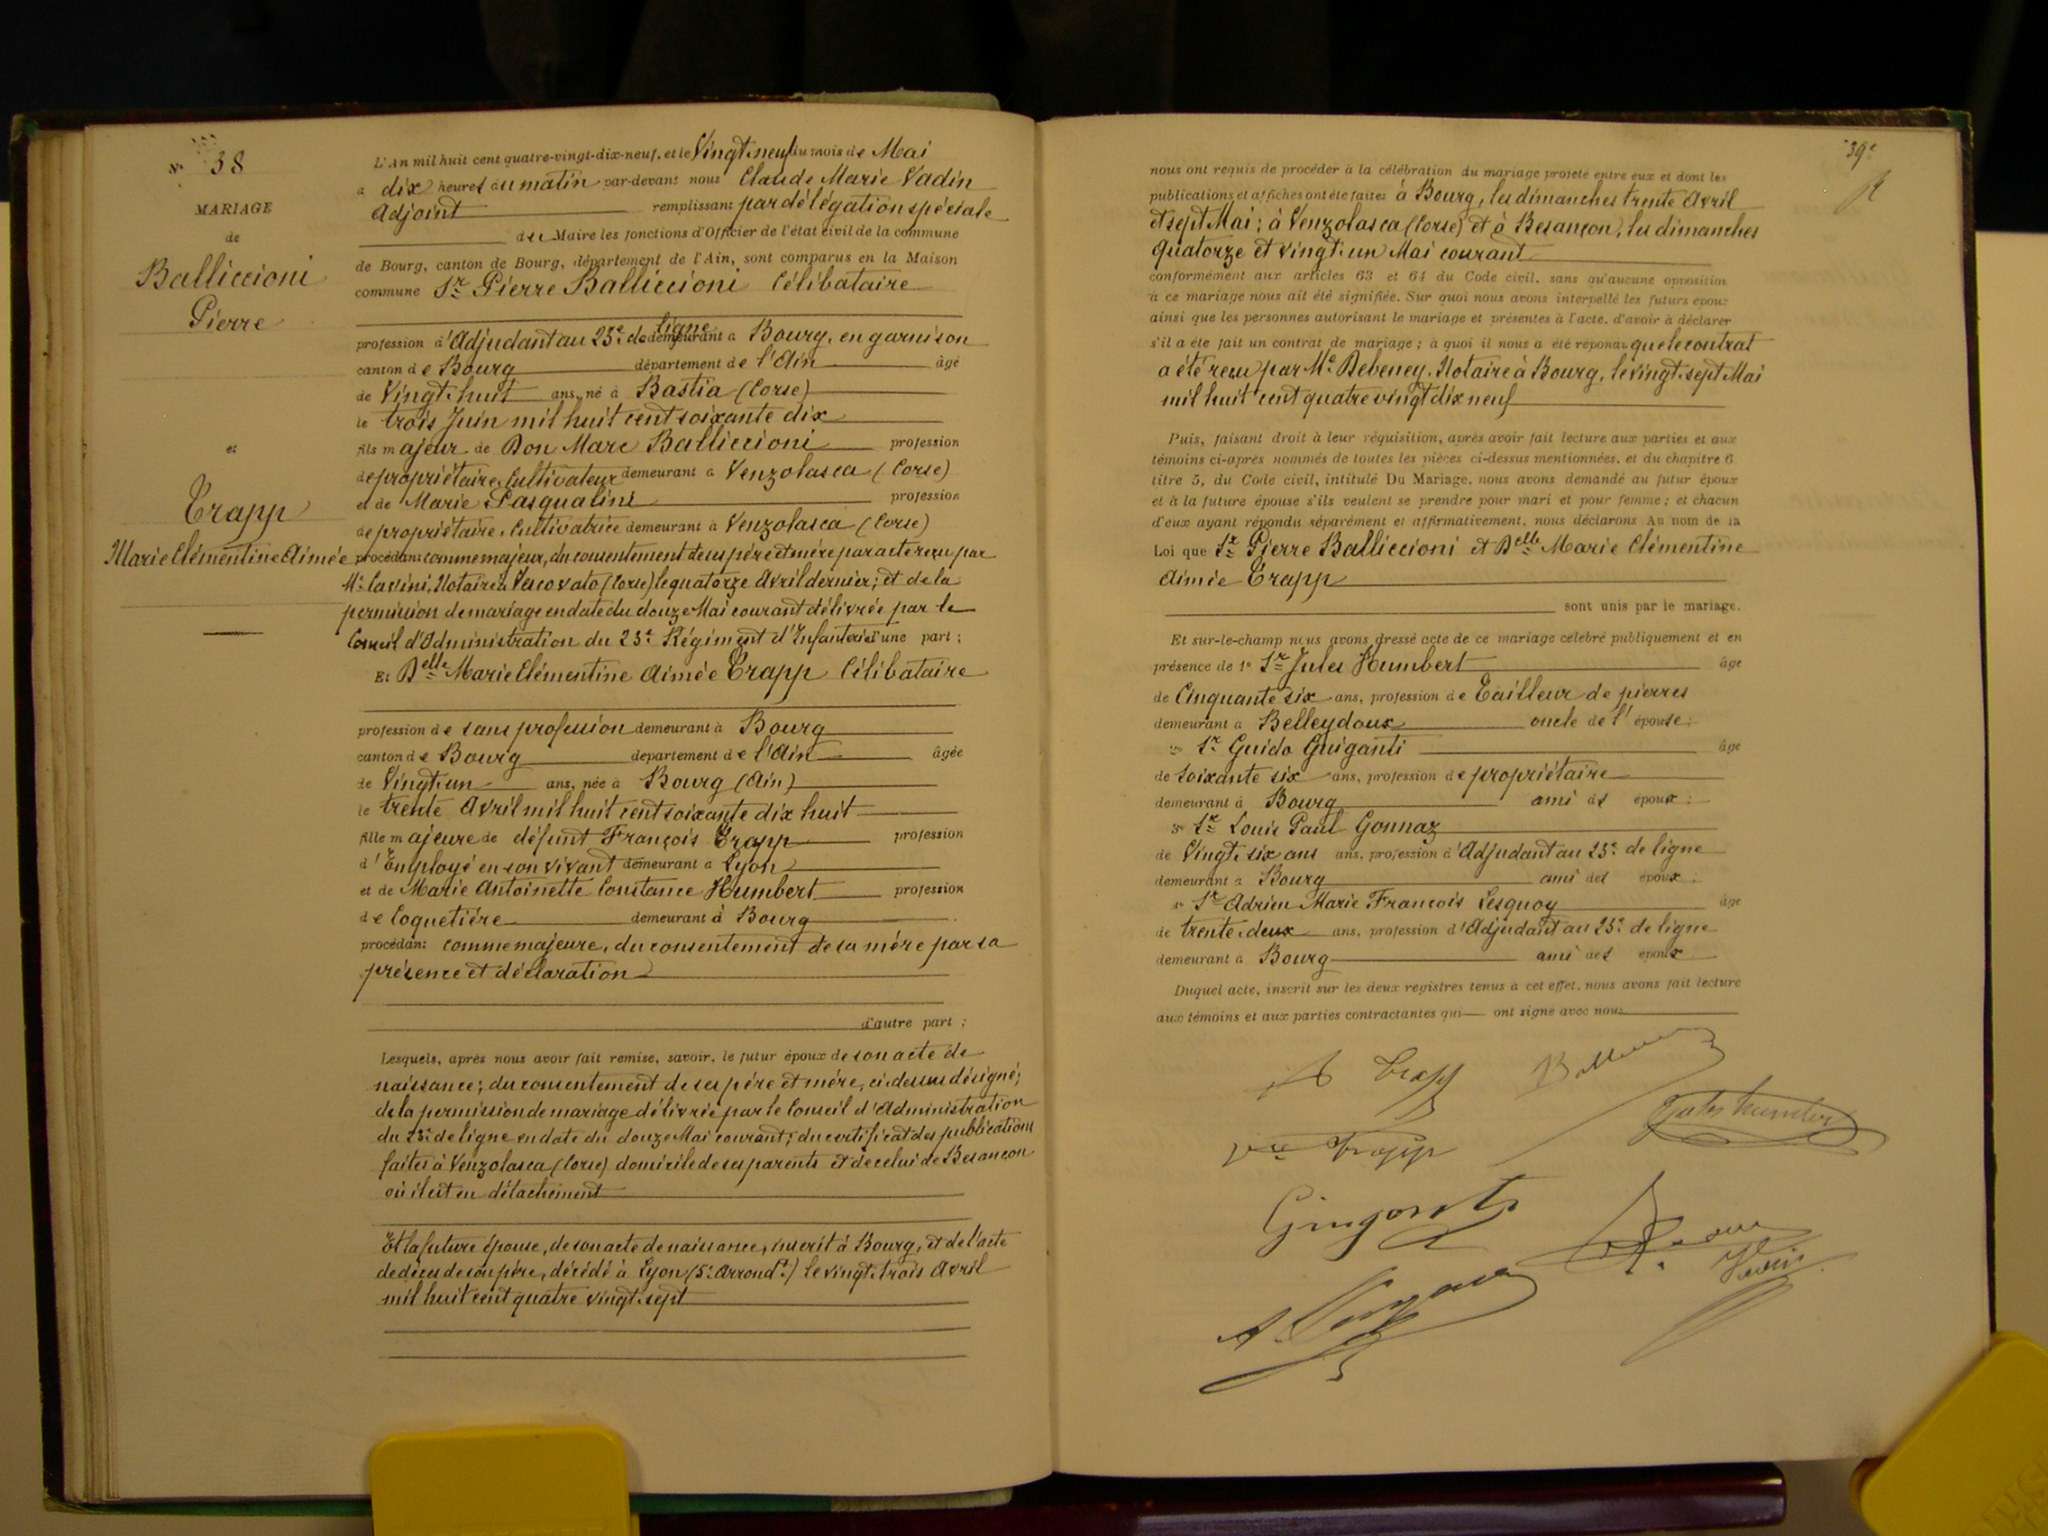 N° 38
MARIAGE
de
Balliccioni
Pierre
et
Trapp
Marie Clémentine Aimée
L'An mil huit cent quatre-vingt-dix-neuf, et le Vingt-neuf du mois de Mai
a dix heures du matin par-devant nous Claude Marie Vadin
Adjoint remplissant par délégation spéciale
du Maire les fonctions d'Officier de l'état civil de la commune
de Bourg, canton de Bourg, département de l'Ain, sont comparus en la Maison
commune Sr Pierre Balliccioni Célibataire
profession d'Adjudant au 23e de ligne demeurant à Bourg, en garnison
canton de Bourg département de l'Ain âgé
de Vingt-huit ans, né à Bastia (Corse)
le trois Juin mil huit cent soixante dix
fils majeur de Don Marc Balliccioni profession
de propriétaire, Cultivateur demeurant à Venzolasca (Corse)
et de Marie Pasqualini profession
de propriétaire, Cultivatrice demeurant à Venzolasca (Corse)
procédant comme majeur, du consentement de ses père et mère par acte reçu par
Me Lavini, Notaire à Vescovato (Corse) le quatorze Avril dernier; et de la
permission de mariage en date du douze Mai courant délivrée par le
Conseil d'Administration du 23e Régiment d'Infanterie d'une part;
Et Delle Marie Clémentine Aimée Trapp Célibataire
profession de sans profession demeurant à Bourg
canton de Bourg département de l'Ain âgée
de Vingt-un ans, née à Bourg (Ain)
le trente Avril mil huit cent soixante dix huit
fille majeure de défunt François Trapp profession
d'Employé en son vivant demeurant à Lyon
et de Marie Antoinette Constance Humbert profession
de Coquetière demeurant à Bourg
procédant comme majeure, du consentement de sa mère par sa
présence et déclaration
d'autre part;
Lesquels, après nous avoir fait remise, savoir, le futur époux de son acte de
naissance; du consentement de ses père et mère, ci-dessus désigné;
de la permission de mariage délivrée par le Conseil d'Administration
du 23e de ligne en date du douze Mai courant; du certificat des publications
faites à Venzolasca (Corse) domicile de ses parents et de celui de Besançon
où il est en détachement
Et la future épouse, de son acte de naissance, inscrit à Bourg, et de l'acte
de décès de son père, décédé à Lyon (5e Arrondt) le vingt-trois Avril
mil huit cent quatre vingt-sept
39e
nous ont requis de procéder à la célébration du mariage projeté entre eux et dont les
publications et affiches ont été faites à Bourg, les dimanches trente Avril
et sept Mai; à Venzolasca (Corse) et à Besançon, les dimanches
quatorze et vingt-un Mai courant
conformément aux articles 63 et 64 du Code civil, sans qu'aucune opposition
à ce mariage nous ait été signifiée. Sur quoi nous avons interpellé les futurs époux
ainsi que les personnes autorisant le mariage et présentes à l'acte, d'avoir à déclarer
s'il a été fait un contrat de mariage; à quoi il nous a été répondu que le contrat
a été reçu par Me Debeney, Notaire à Bourg, le vingt-sept Mai
mil huit cent quatre vingt dix neuf
Puis, faisant droit à leur réquisition, après avoir fait lecture aux parties et aux
témoins ci-après nommés de toutes les pièces ci-dessus mentionnées, et du chapitre 6
titre 5, du Code civil, intitulé Du Mariage, nous avons demandé au futur époux
et à la future épouse s'ils veulent se prendre pour mari et pour femme; et chacun
d'eux ayant répondu séparément et affirmativement, nous déclarons Au nom de la
Loi que Sr Pierre Balliccioni et Delle Marie Clémentine
Aimée Trapp
sont unis par le mariage.
Et sur-le-champ nous avons dressé acte de ce mariage célébré publiquement et en
présence de 1° Sr Jules Humbert âgé
de Cinquante six ans, profession de Tailleur de pierres
demeurant à Belleydoux oncle de l'épouse;
2° Sr Guido Guiganti âgé
de soixante six ans, profession de propriétaire
demeurant à Bourg ami des époux;
3° Sr Louis Paul Gonnaz
de Vingt-six ans ans, profession d'Adjudant au 23e de ligne
demeurant à Bourg ami des époux;
4° Sr Adrien Marie François Lesquoy âgé
de trente-deux ans, profession d'Adjudant au 23e de ligne
demeurant à Bourg ami des époux
Duquel acte, inscrit sur les deux registres tenus à cet effet, nous avons fait lecture
aux témoins et aux parties contractantes qui ont signé avec nous
Trapp
Jules Humbert
Vve Trapp